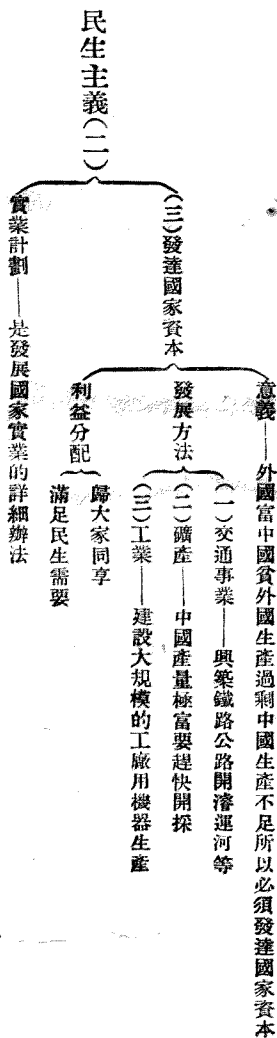 民生主義(二)
(三)發達國家資本
意義——外國富中國貧外國生產過剩中國生產不足所以必須發達國家資本
發展方法
(一)交通事業——興築鐵路公路開濬運河等
(二)礦產——中國產量極富要趕快開採
(三)工業——建設大規模的工廠用機器生產
利益分配
歸大家同享
滿足民生需要
實業計劃——是發展國家實業的詳細辦法